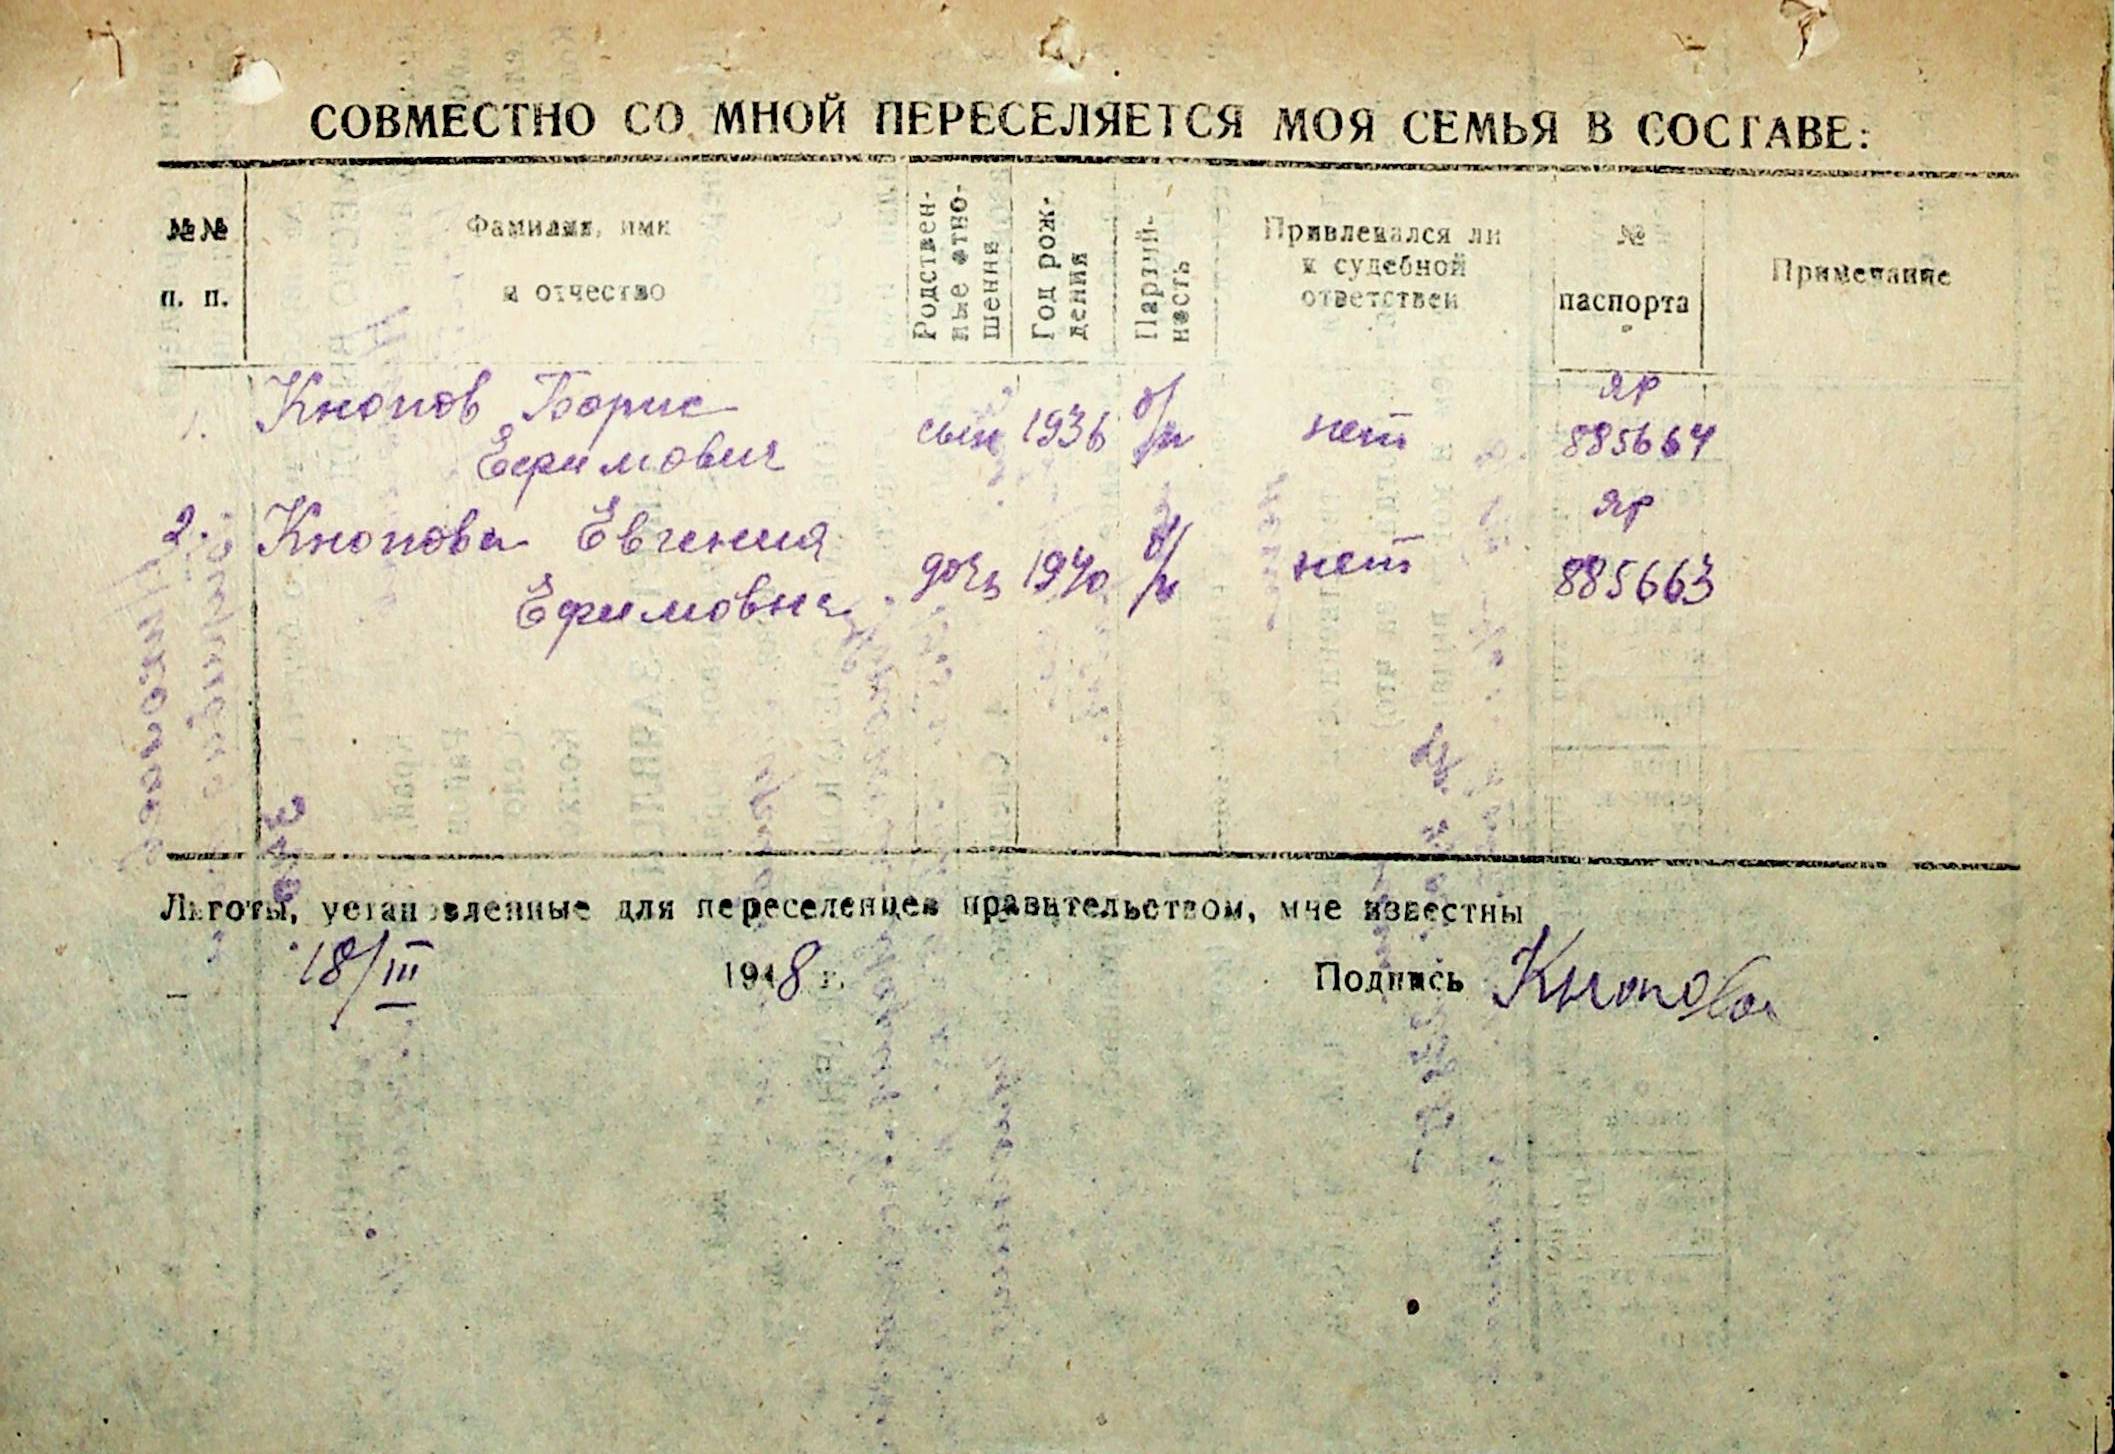 СОВМЕСТНО СО МНОЙ ПЕРЕСЕЛЯЕТСЯ МОЯ СЕМЬЯ В СОСТАВЕ:
№№ п. п.
Фамилия, имя и отчество
Родствен-
ные отно-
шения
Год рож-
дения
Партий-
ность
Привлекался ли
к судебной
ответствен
№
паспорта
Примечание
1. Кнопов Борис
Ефимович
сын 1936 б/п нет ЯР
885664
2. Кнопова Евгения
Ефимовна
дочь 1940 б/п нет ЯР
885663
Льготы, установленные для переселенцев правительством, мне известны
18/III 1948 г. Подпись Кнопова